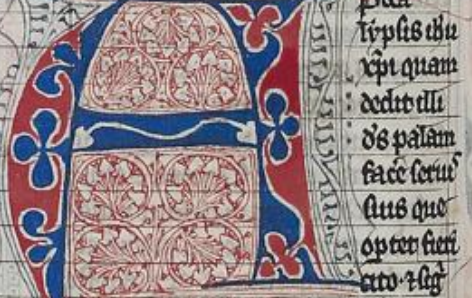 A
lypsis ihu
xp̄i quam
dedit illi
d̄s palam
facē seruiˢ
suis que
optet fieri
cito ⁊ siḡ